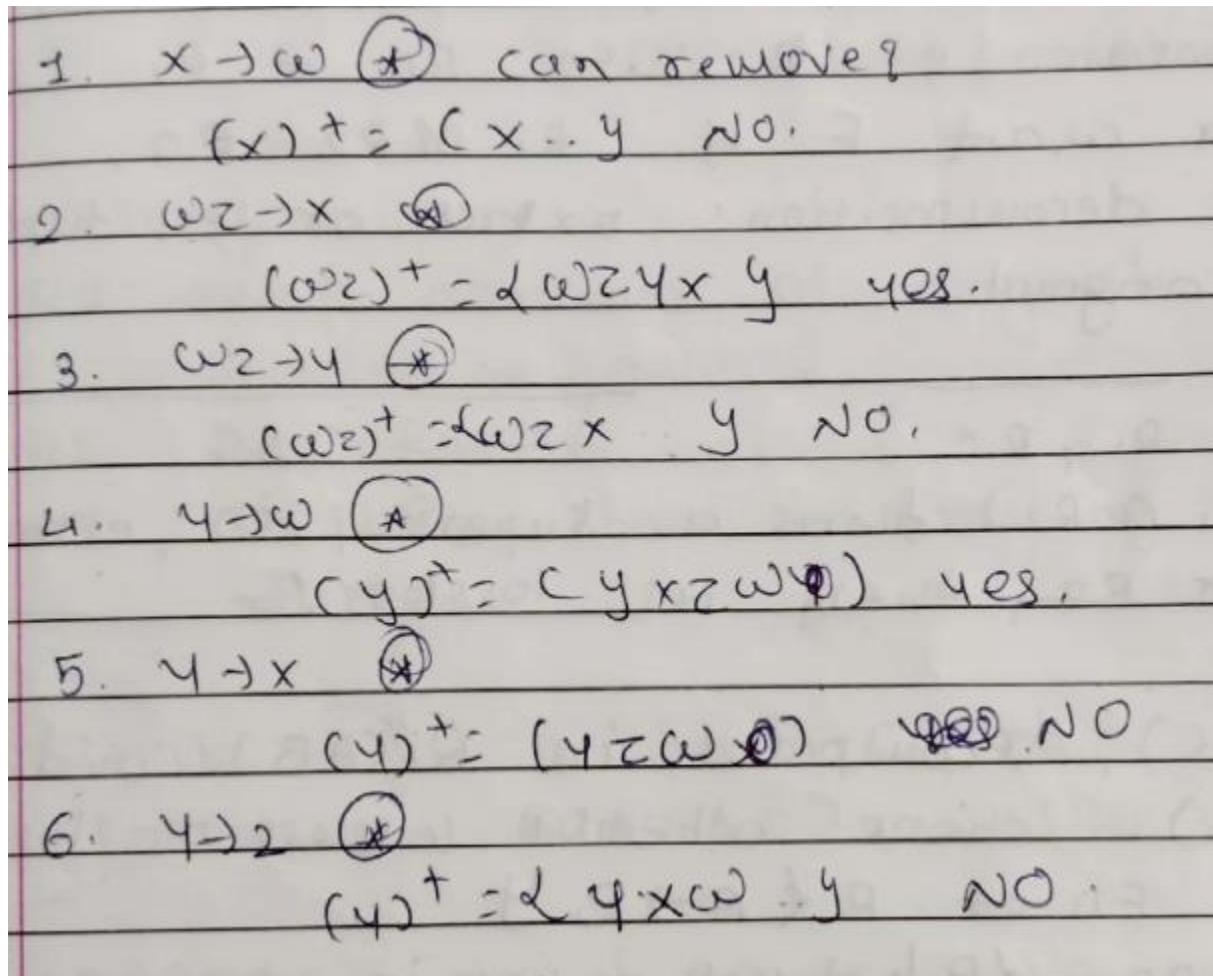 1. x → w (*) can remove?
(x)+ = { x .. } NO.
2. wz → x (*)
(wz)+ = { wzyx } yes.
3. wz → y (*)
(wz)+ = { wzx } NO.
4. y → w (*)
(y)+ = { y x z w } yes.
5. y → x (*)
(y)+ = { y z w } NO
6. y → z (*)
(y)+ = { y x w } NO.